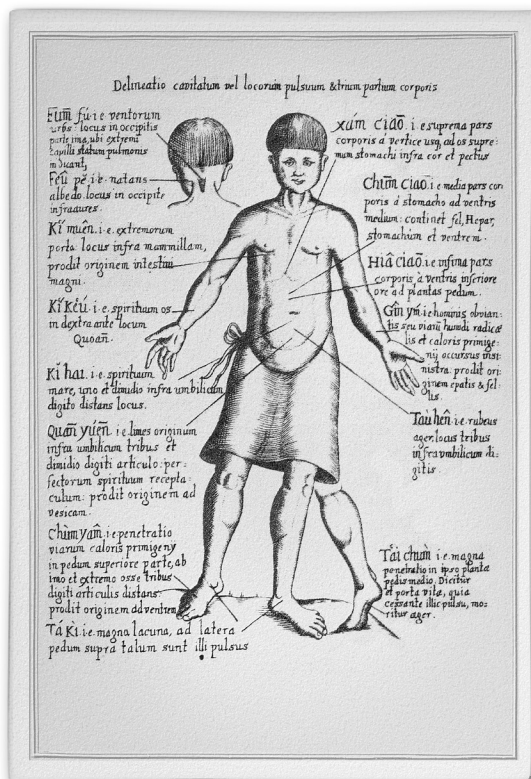 Delineatio cavitatum vel locorum pulsuum & trium partium corporis
Fum fú i.e ventorum
urbs: locus in occipitis
parte ima, ubi extremi
capilli statum pulmonis
indicant,
Feû pĕ i.e. natans
albedo locus in occipite
infra aures.
Kĭ muên. i.e. extremorum
porta locus infra mammillam,
prodit originem intestini
magni.
Kĭ Kèu. i.e. spirituum os
in dextra ante locum
Quoan.
Kĭ hai. i.e. spirituum
mare, uno et dimidio infra umbilicum
digito distans locus.
Quan yuên. i.e limes originum
infra umbilicum tribus et
dimidio digiti articulo: per:
fectorum spirituum recepta
culum: prodit originem ad
vesicam.
Chùm yam. i.e. penetratio
viarum caloris primigeny
in pedum superiore parte, ab
imo et extremo osse tribus
digiti articulis distans
prodit originem ad ventrem
Tá Kì. i.e. magna lacuna, ad latera
pedum supra talum sunt illi pulsus
xám ciao. i.e suprema pars
corporis a vertice usq, ad os supre:
mum stomachi infra cor et pectus
Chum ciao. i.e media pars cor
poris à stomacho ad ventris
medium: continet fel, Hepar,
stomachum et ventrem.
Hiâ ciao. i.e infima pars
corporis à ventris inferiore
ore ad plantas pedum.
Gîn ym. i.e hominis obvian:
tis seu viarū humidi radica
lis et caloris primige:
nij occursus in si:
nistra. prodit ori:
ginem epatis & fel
lis.
Tan hên. i.e. rubeus
ager. locus tribus
infra umbilicum di:
gitis.
Tái chum i.e. magna
penetratio in ipso plantæ
pedis medio. Dicitur
et porta vitæ, quia
cessante illic pulsu, mo:
ritur æger.